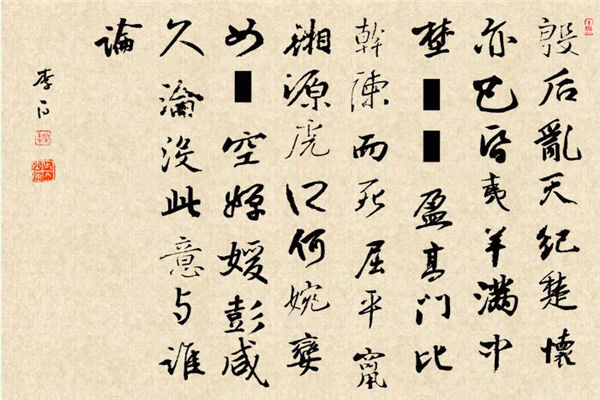 殷后亂天紀楚懷
亦已昏夷羊滿中
埜盈高门比
幹諫而死屈平竄
湘源虎口何婉孌
女空婵媛彭咸
久淪没此意与谁
論
李白